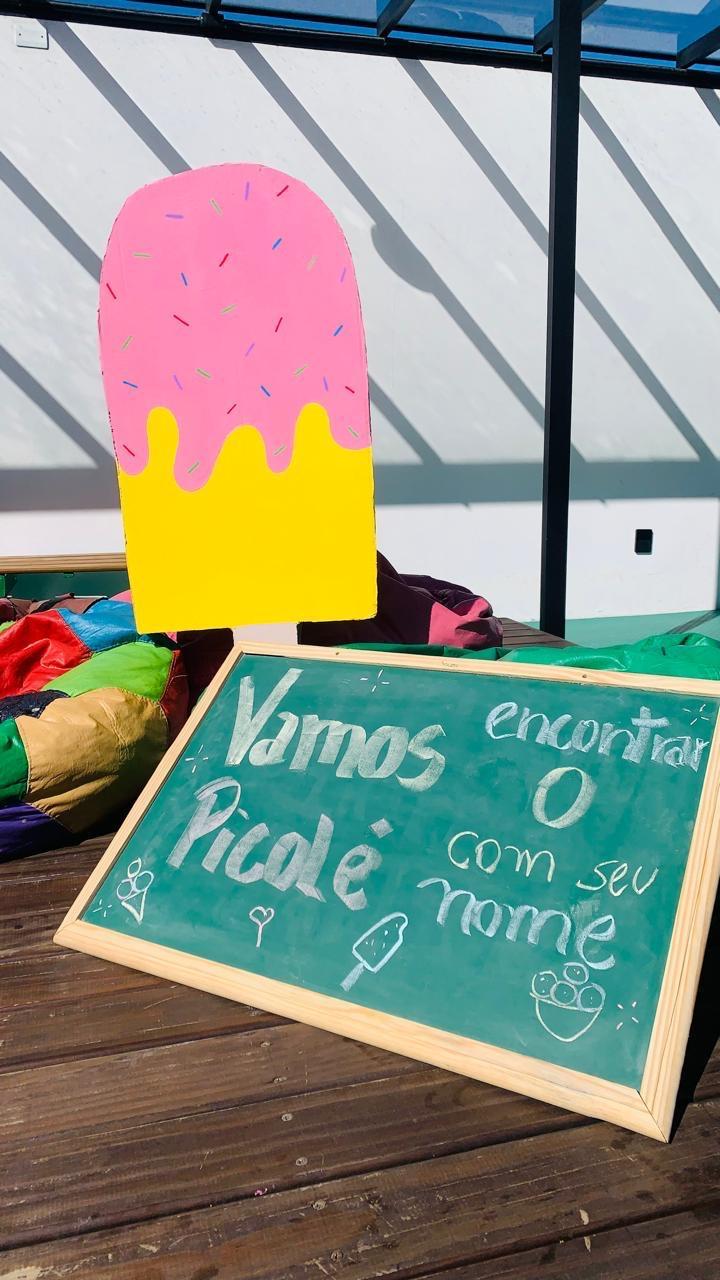 Vamos encontrar
o
Picolé com seu
nome